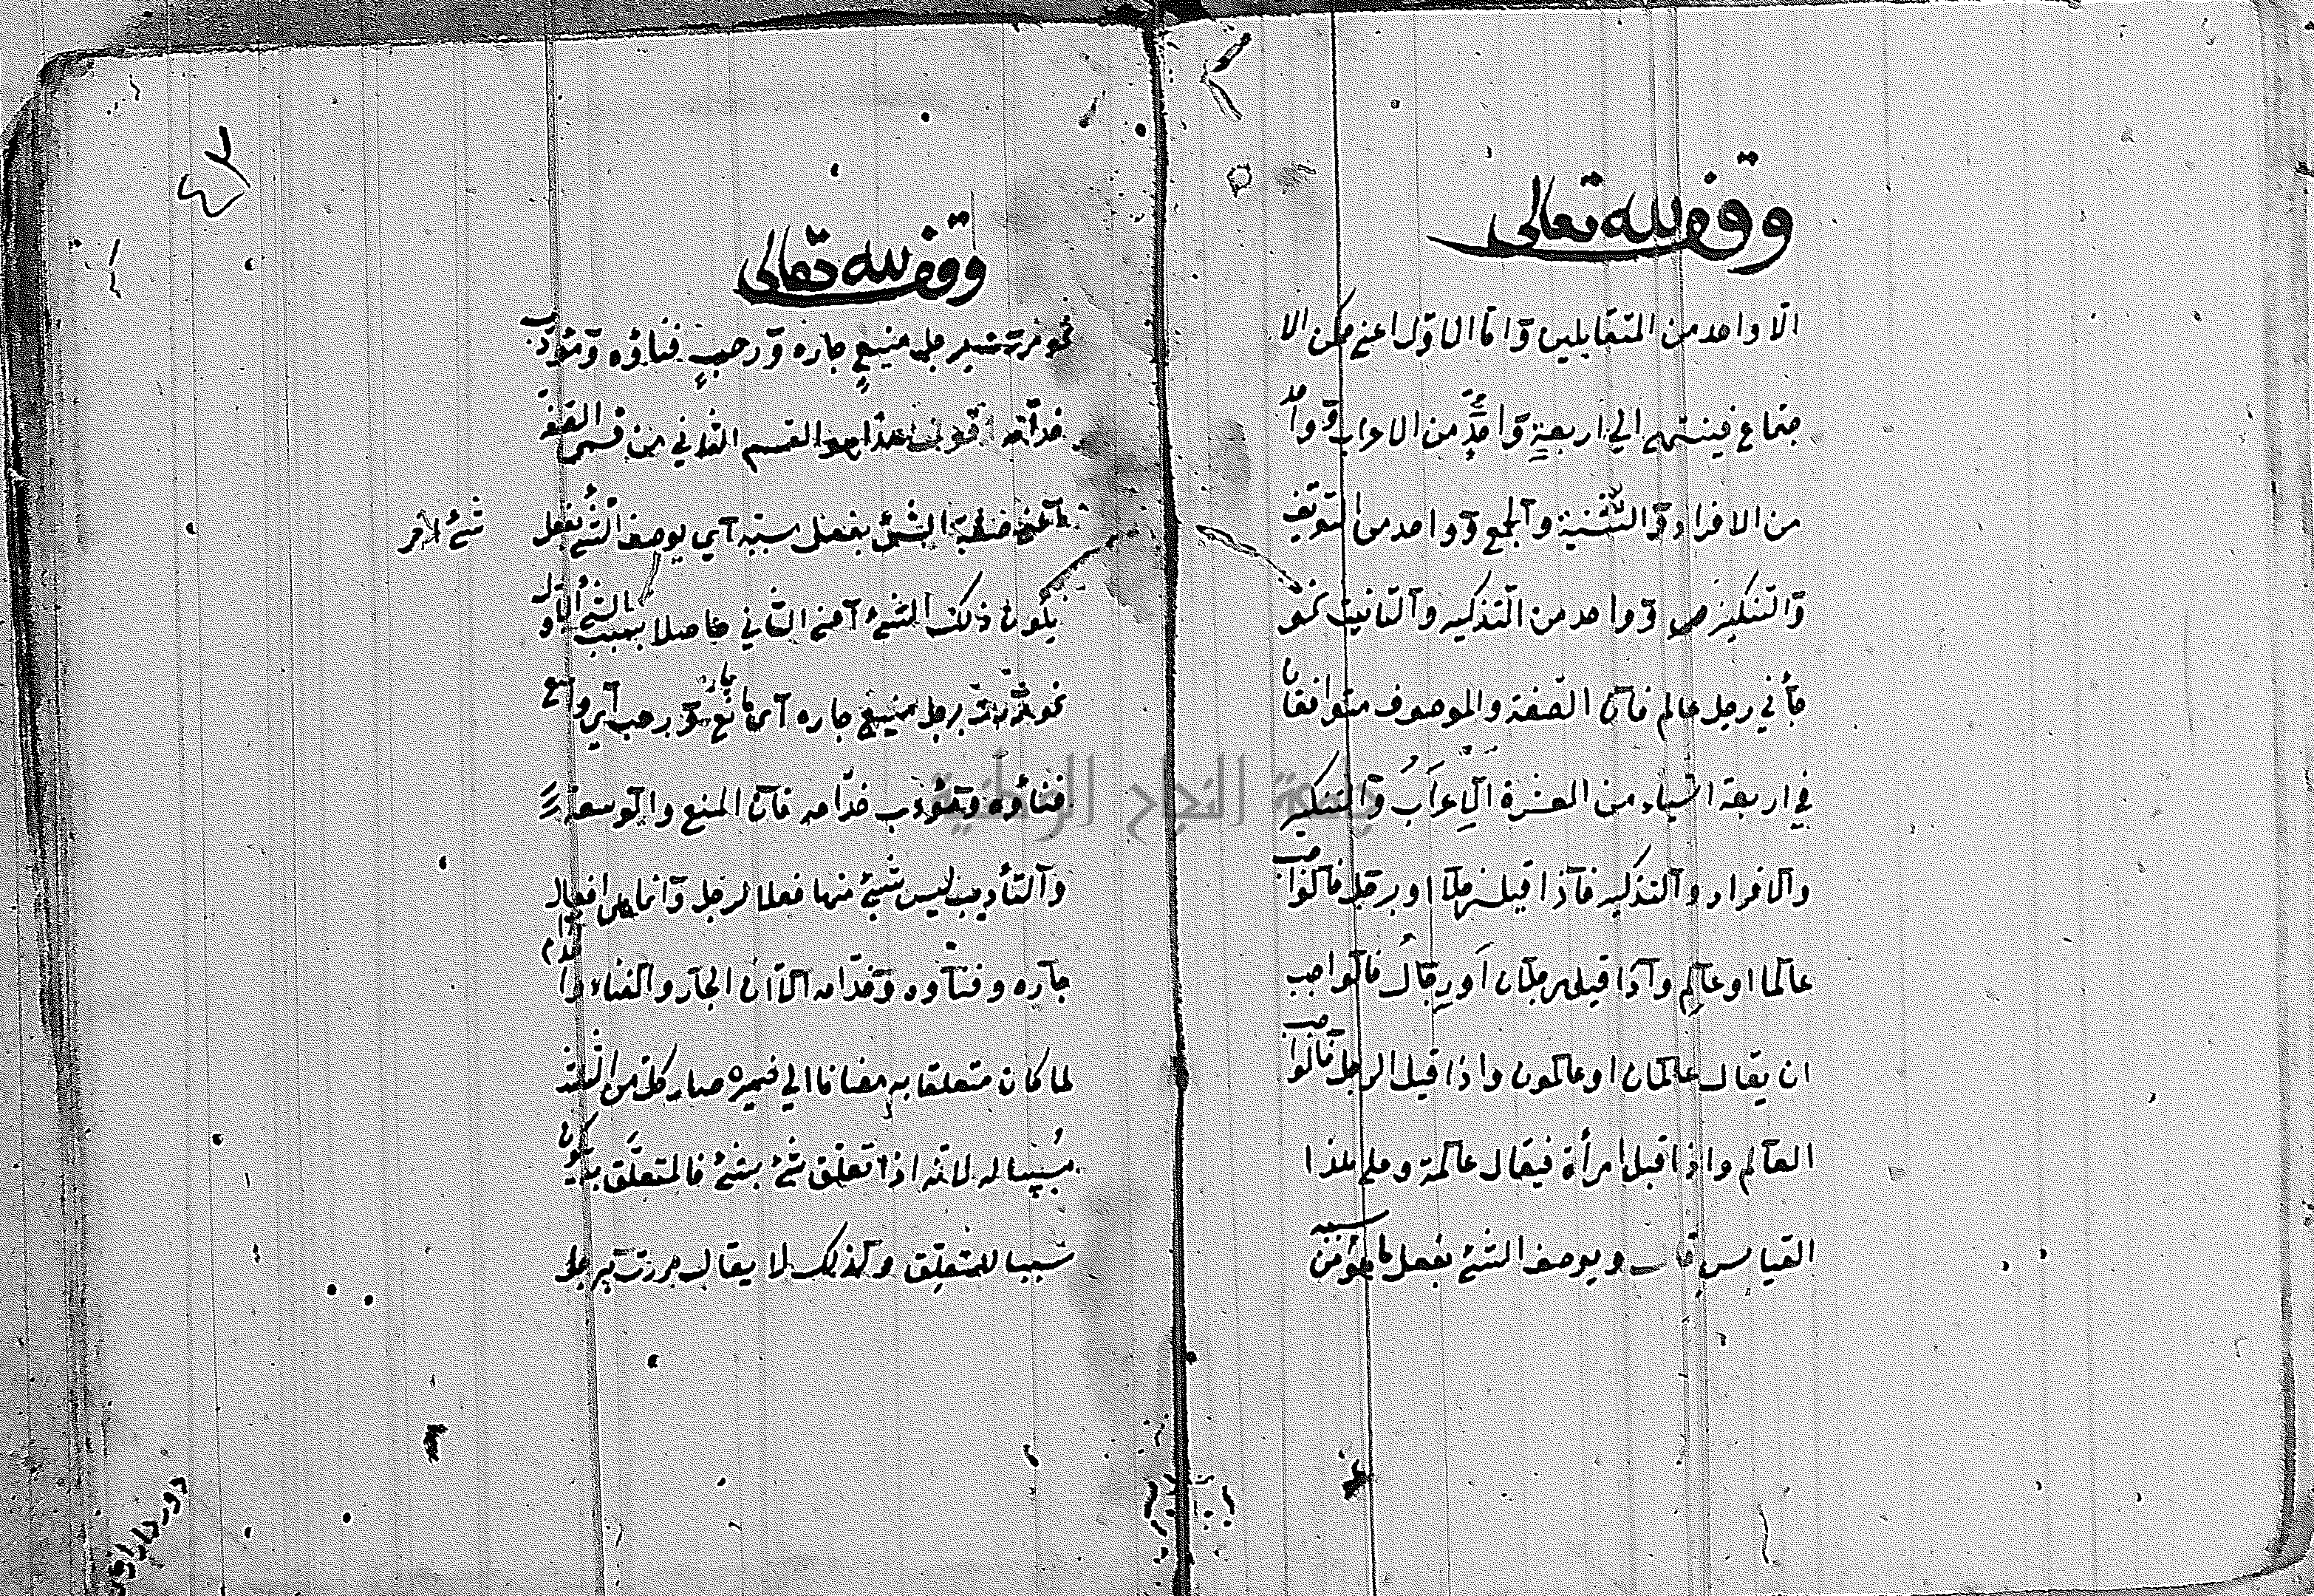 وقف لله تعالى
الا واحد من المتقابلين واما الاول اعني ممكن الا
جتماع فينتهي الي اربعة واحد من الاعراب وواحد
من الافراد والتثنية والجمع وواحد من التوقيف
والتنكير وواحد من التذكير والتانيث نحو
جأني رجل عالم فان الصفة والموصوف متوافقان
في اربعة اشياء من العشرة الاعراب والتنكير
والافراد والتذكير فاذا قيل رجلا او برجل فالواجب
عالما او عالم واذا قيل رجلان او رجال فالواجب
ان يقال عالمان او عالمون واذا قيل الرجل فالواجب
العالم واذا قيل امرأة فيقال عالمة وعلي هذا
القياس قال ويوصف الشئ بفعل ما هو من سببه
وقف لله تعالى
نحو مررت برجل منيع جاره ورحب فناؤه ومؤدب
خدامه اقول هذا هو القسم الثاني من قسمي الصفة
اعني صفة الشئ بفعل سببه اي يوصف الشئ بفعل
شئ اخر
يكون ذلك الشئ اعني الثاني حاصلا بسبب الشئ الاول
نحو مررت برجل منيع جاره اي مانع جاره ورحب اي واسع
فناؤه ومؤدب خدامه فان المنع والوسعة
والتأديب ليس شئ منها فعلا لرجل وانما هي افعال
جاره وفناوه وخدامه الا ان الجار والفناء والخدام
لما كان متعلقا به مضافا الي ضميره صار كل من الثلثة
سببا له لانه اذا تعلق شئ بشئ فالمتعلق به يكون
سببا للمتعلق ولذلك لا يقال مررت برجل
جامعة النجاح الوطنية